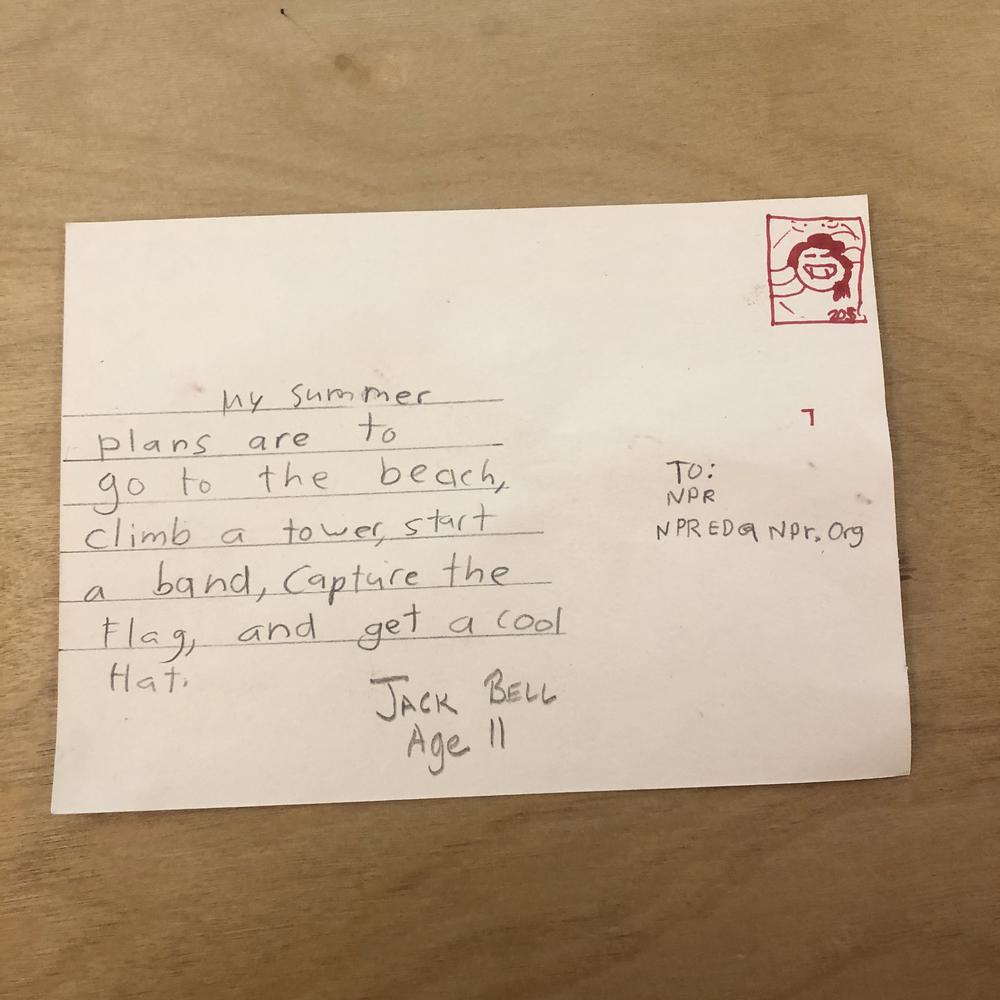 My summer
plans are to
go to the beach,
climb a tower, start
a band, Capture the
Flag, and get a cool
Hat.
JACK BELL
Age 11
TO:
NPR
NPRED@ NPr. Org